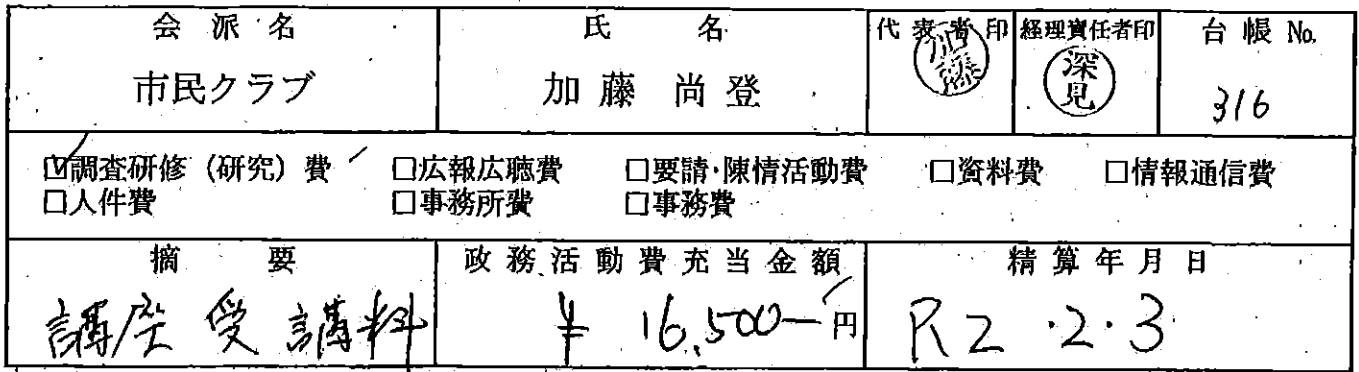 会派名 氏名 代表者印 経理責任者印 台帳 No.
市民クラブ 加藤 尚登 加藤 深見 316
☑調査研修(研究)費 □広報広聴費 □要請・陳情活動費 □資料費 □情報通信費
□人件費 □事務所費 □事務費
摘要 政務活動費充当金額 精算年月日
講座受講料 ¥16,500―円 R2・2・3